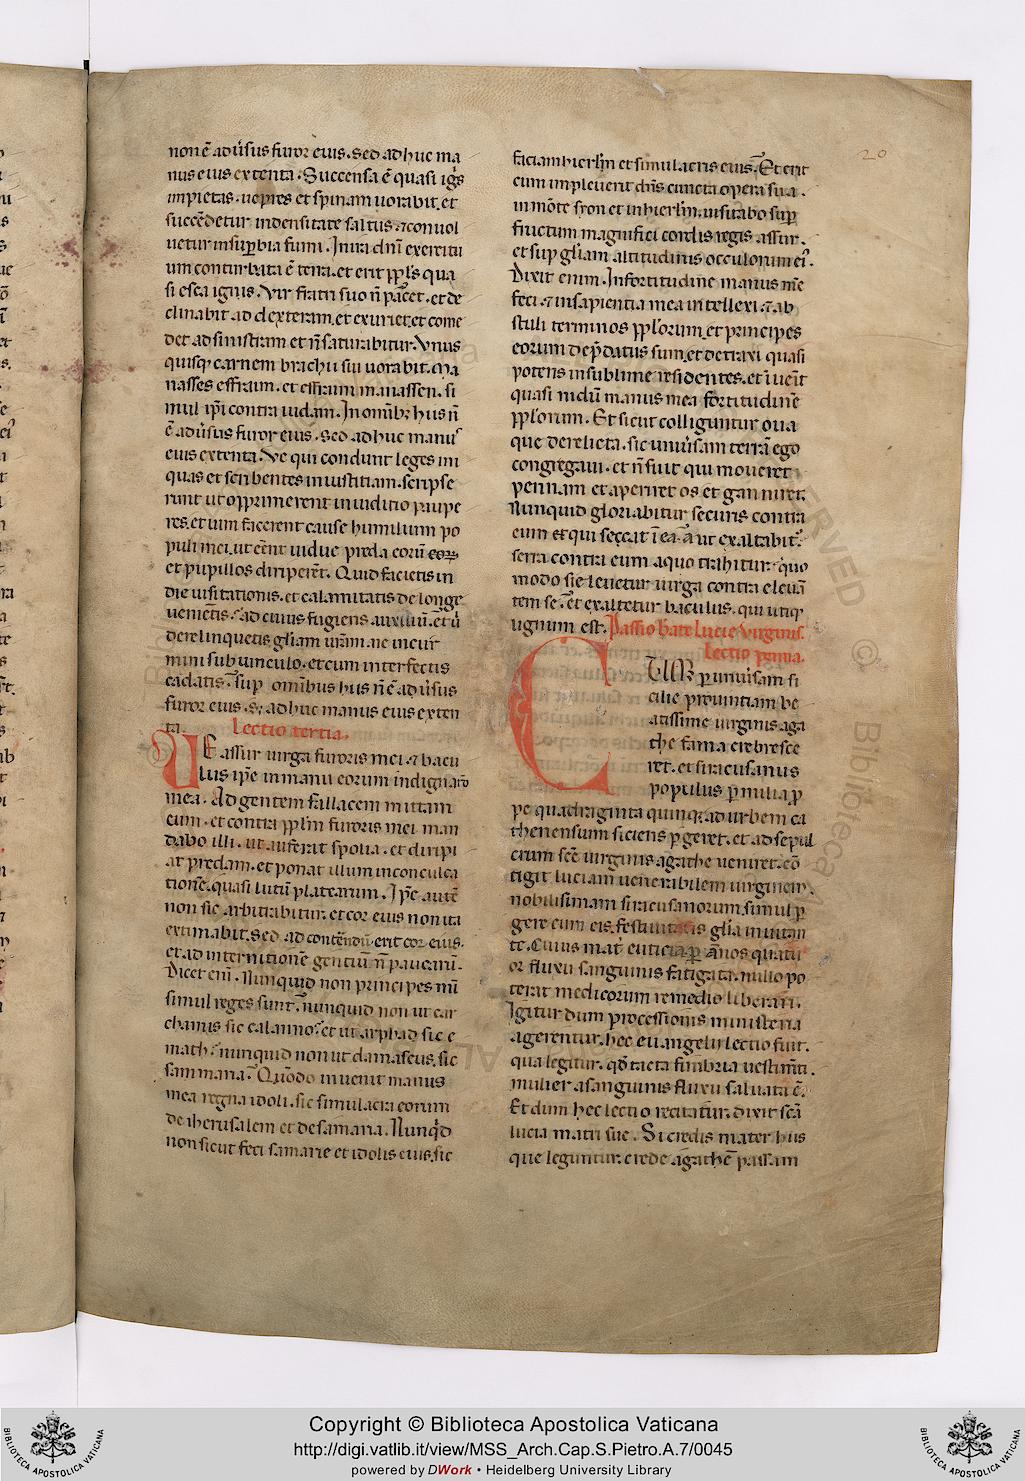 20
non ē aduͥsus furor eius. Sed adhuc ma
nus eius extenta. Succensa ē quasi igͥs
impietas. uepres et spinam uorabit. et
succēdetur indensitate saltus. ⁊conuol
uetur insuꝑbia fumi. In ira dn̄i exercitu
um conturbata ē terra. et erit ppl̄s qua
si esca ignis. Vir fratri suo n̄ ꝑc̄et. et de
clinabit ad dexteram. et exuriet. et come
det ad sinistram et n̄ saturabitur. Vnus
quisq; carnem brachii sui uorabit. Ma
nasses effraim. et effraim manassen. si
mul ip̄i contra iudam. In omīb; hiis n̄
ē aduͥsus furor eius. Sed adhuc manuˢ
eius extenta. Ve qui condunt leges ini
quas et scribentes iniustitiam. scripse
runt ut opprimerent in iuditio paupe
res. et uim facerent cause humilium po
puli mei. ut eēnt uidue preda eorū
et pupillos diriperēt. Quid facietis in
die uisitationis. et calamitatis de longe
uenientis. ad cuius fugiens auxiliū. et u͛
derelinquetis gl̄iam ur̄am. ne incur
mini sub uinculo. et cum interfectis
cadatis. suꝑ omībus hiis n̄ ē aduͥsus
furor eius. s; adhuc manus eius exten
ta. Lectio tertia.
Ve assur uirga furoris mei. ⁊ bacu
lus ip̄e in manu eorum indignatō
mea. Ad gentem fallacem mittam
eum. et contra ppl̄m furoris mei man
dabo illi. ut auferat spolia. et diripi
at predam. et ponat illum inconculca
tionē. quasi lutū platearum. Ip̄e autē
non sic arbitrabitur. et cor eius non ita
extimabit. Sed ad contēndū erit cor eius.
et ad internitionē gentiū n̄ paucarū.
Dicet enī. Nunquid non principes mī
simul reges sunt. nunquid non ut car
chamis sic calanno. et ut arphad sic e
math. nunquid non ut damascus. sic
samaria. Quōdo inuenit manus
mea regna idoli. sic simulacra eorum
de iherusalem et de samaria. Nunqͥd
non sicut feci samarie et idolis eius. sic
faciam hierl̄m et simulacris eius. Et erit
cum impleuerit dn̄s cuncta opera sua.
in mōte syon et in hierl̄m. uisitabo suꝑ
fructum magnifici cordis regis assur.
et suꝑ gl̄iam altitudinis occulorum eiꝰ.
Dixit enim. In fortitudine manus mē
feci. ⁊ in sapientia mea intellexi. ⁊ ab
stuli terminos ppl̄orum. et principes
eorum dep̄datus sum. et detraxi quasi
potens in sublime residentes. et iuēit
quasi nidū manus mea fortitudinē
ppl̄orum. Et sicut colliguntur oua
que derelicta. sic uniuͥsam terrā ego
congregaui. et n̄ fuit qui moueret
pennam et aperiret os et ganniret.
Nunquid gloriabitur securis contra
eum qui seccat ī ea. ā ut exaltabitͬ.
serra contra eum a quo trahitur. quo
modo si eleuetur uirga contra eleuā
tem se. et exaltetur baculus. qui utiq;
lignum est. Passio bāte Lucie virginis.
Lectio prima.
CUM ꝑ uniuͥsam si
cilie prouintiam be
atissime uirginis aga
the fama crebresce
ret. et siracusanus
populus ꝑ milia ꝑ
pe quadraginta quinq; ad urbem ca
thenensium siciens ꝑgeret. et ad sepul
crum sc̄e uirginis agathe ueniret. cō
tigit luciam uenerabilem uirginem.
nobilissimam siracusanorum. simul ꝑ
gere cum eis. festiuitatis gl̄ia inuitan
te. Cuius mat͛ euticia ꝑ ānos quatu
or fluxu sanguinis fatigata. nullo po
terat medicorum remedio liberari.
Igitur dum processionis ministeria
agerentur. hec euangelii lectio fuit.
qua legitur. qd̄ tacta fimbria uestimti.
mulier a sanguinis fluxu saluata ē.
Et dum hec lectio recitatur. dixit scā
lucia matri sue. Si credis mater hiis
que leguntur. crede agathē passam
Copyright © Biblioteca Apostolica Vaticana
http://digi.vatlib.it/view/MSS_Arch.Cap.S.Pietro.A.7/0045
powered by DWork • Heidelberg University Library
BIBLIOTECA APOSTOLICA VATICANA
BIBLIOTECA APOSTOLICA VATICANA